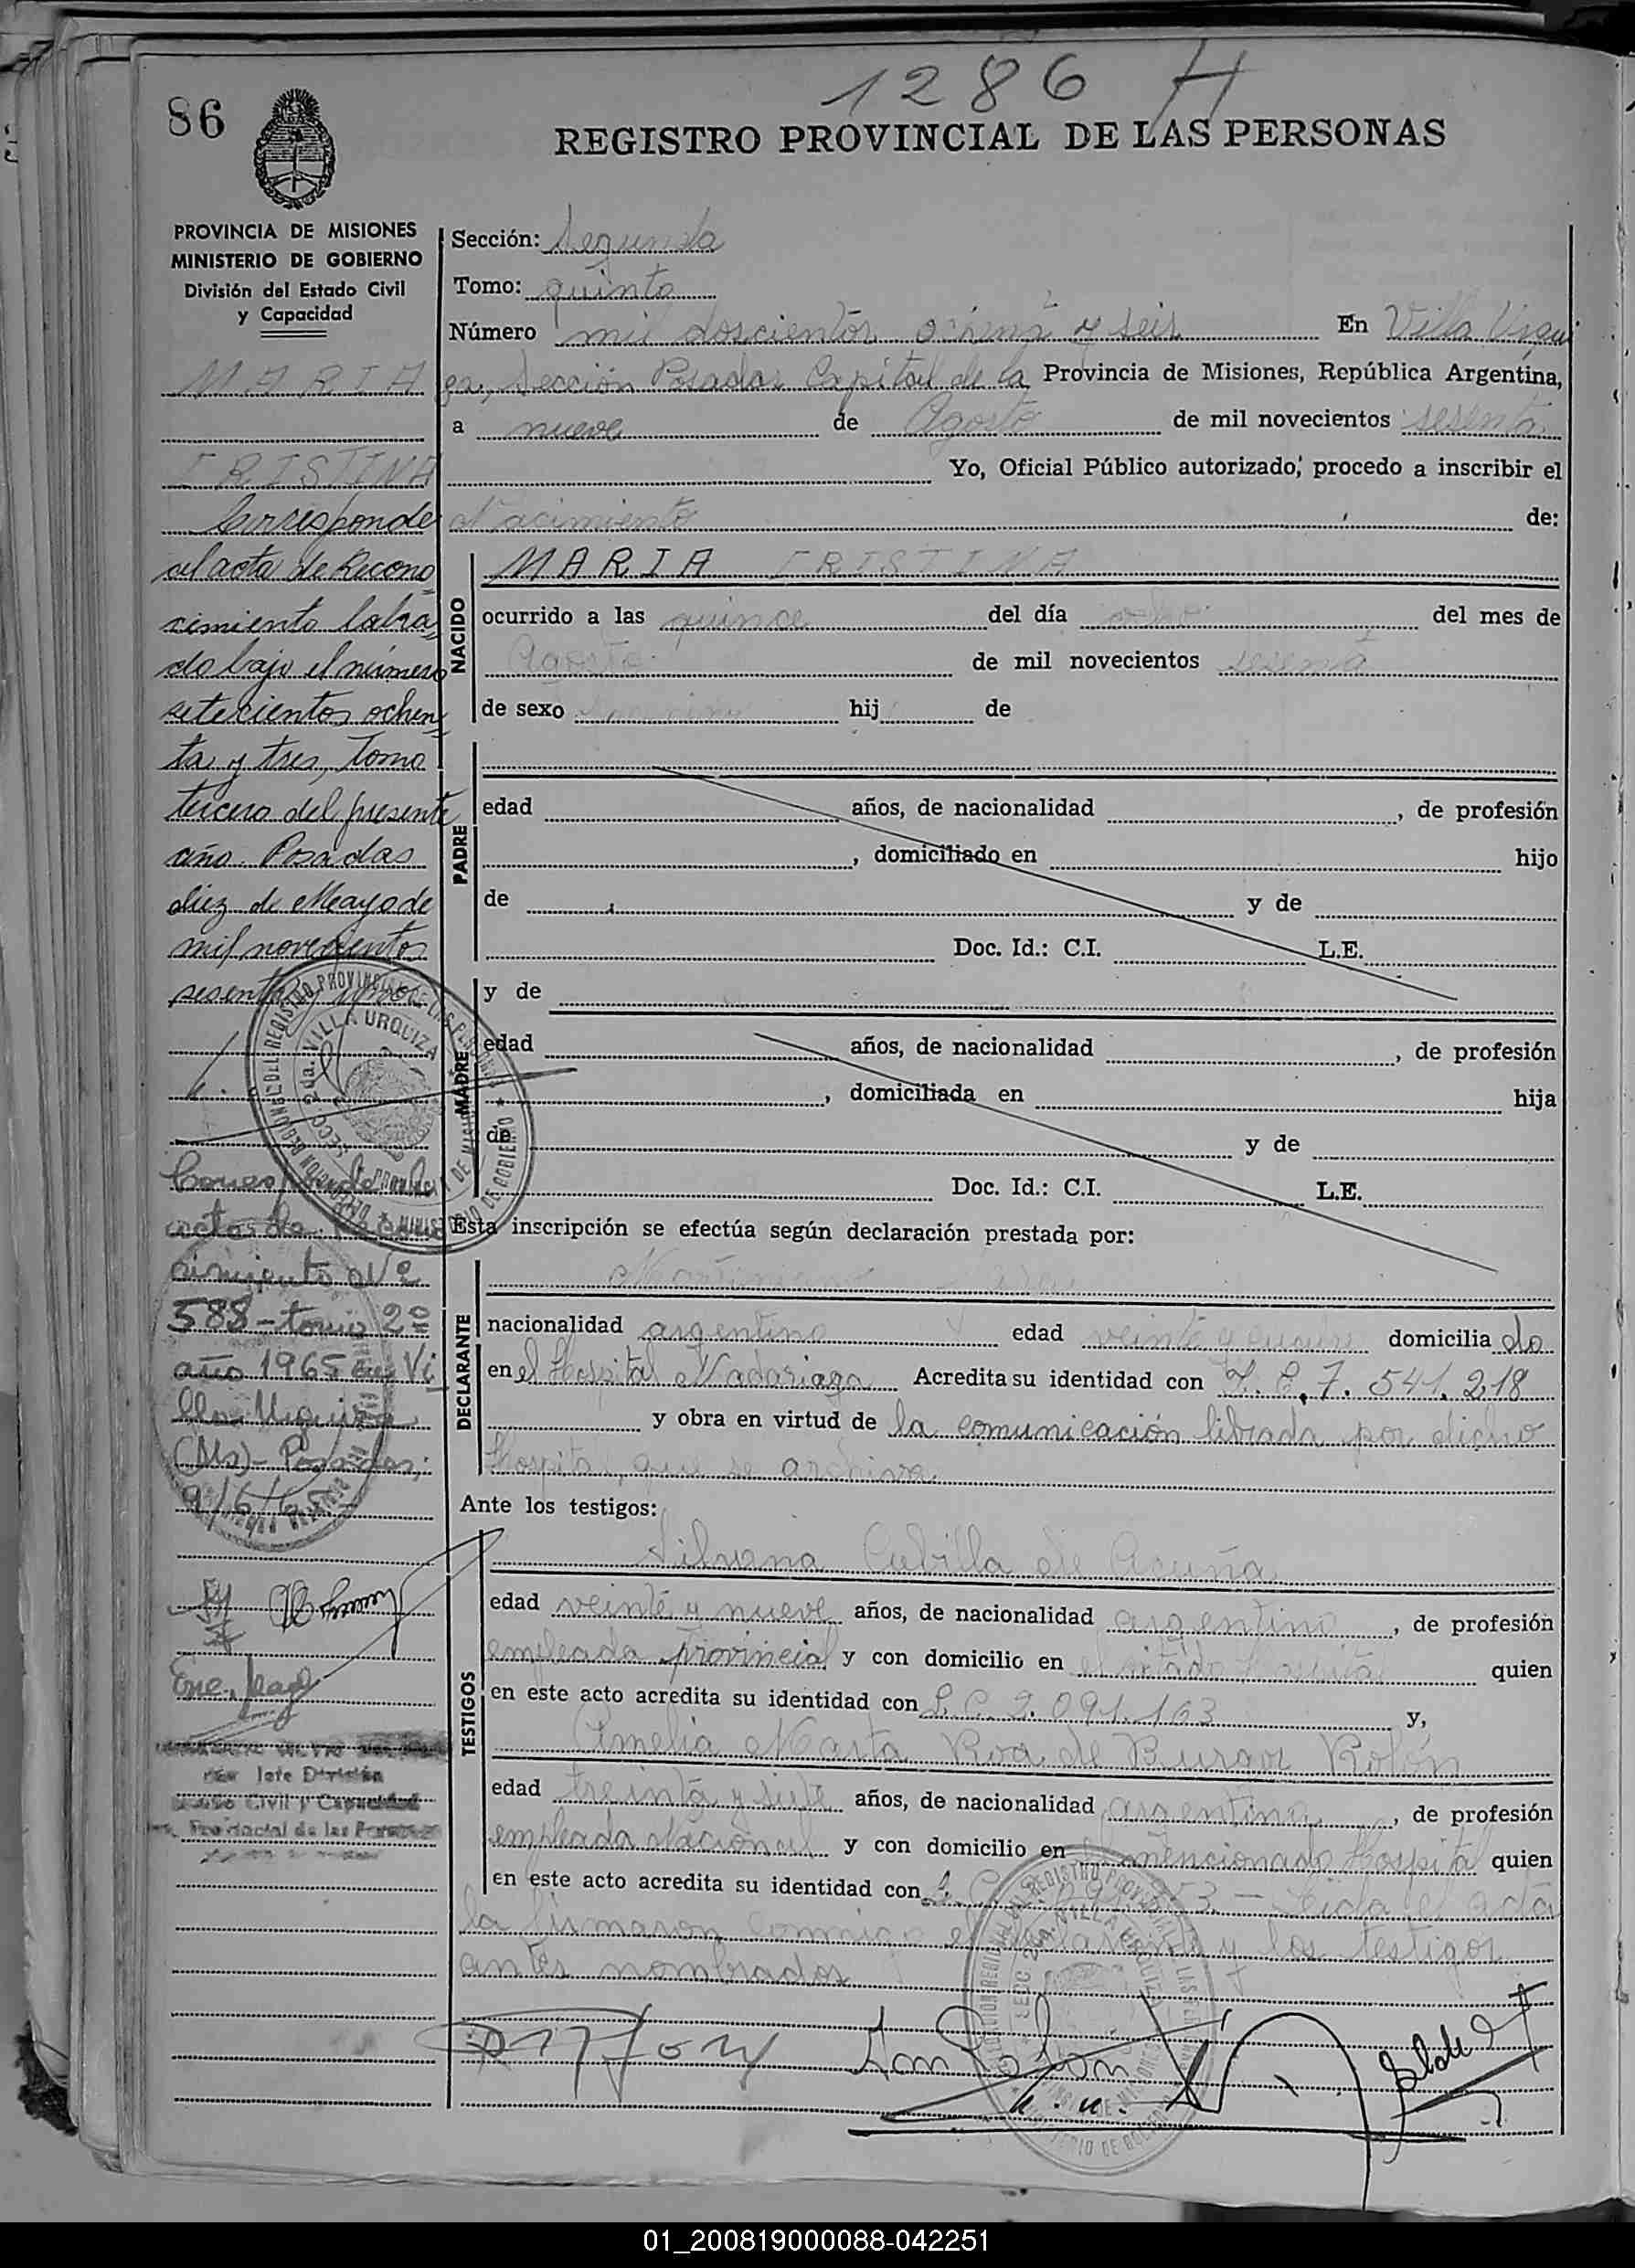 1286 H
86
REGISTRO PROVINCIAL DE LAS PERSONAS
PROVINCIA DE MISIONES
MINISTERIO DE GOBIERNO
División del Estado Civil
y Capacidad
MARIA
CRISTINA
Corresponde
al acta de Recono
cimiento labra
do bajo el número
setecientos ochen
ta y tres, Tomo
tercero del presente
año. Posadas
diez de Mayo de
mil novecientos
sesenta y uno
Corresponde
actas de
cimiento Nº
588-tomo 2º
año 1965 en Vi
lla Urquiza
(Ms)- Posadas,
9/6/65
Jefe División
Estado Civil y Capacidad
Provincial de las Personas
Sección: Segunda
Tomo: quinto
Número mil doscientos ochenta y seis En Villa Urqui
za, Sección Posadas Capital de la Provincia de Misiones, República Argentina,
a nueve de Agosto de mil novecientos sesenta
Yo, Oficial Público autorizado, procedo a inscribir el
Nacimiento de:
NACIDO
MARIA CRISTINA
ocurrido a las quince del día ocho del mes de
Agosto de mil novecientos sesenta
de sexo femenino hij de
PADRE
edad años, de nacionalidad , de profesión
, domiciliado en hijo
de y de
Doc. Id.: C.I. L.E.
MADRE
y de
edad años, de nacionalidad , de profesión
, domiciliada en hija
de y de
Doc. Id.: C.I. L.E.
Esta inscripción se efectúa según declaración prestada por:
DECLARANTE
nacionalidad argentino edad veinte y cuatro domicilia do
en el Hospital Madariaga Acredita su identidad con L.E. 7.541.218
y obra en virtud de la comunicación librada por dicho
Hospital, que se archiva
Ante los testigos:
TESTIGOS
Silvana Cubilla de Acuña
edad veinte y nueve años, de nacionalidad argentina, de profesión
empleada provincial y con domicilio en el citado Hospital quien
en este acto acredita su identidad con L.C. 2.091.163 y,
Amelia Marta Roa de Burgos Rolón
edad treinta y siete años, de nacionalidad argentina, de profesión
empleada Nacional y con domicilio en el mencionado Hospital quien
en este acto acredita su identidad con L.C. 53.- Leida el acta
la firmaron conmigo el declarante y los testigos
antes nombrados
01_200819000088-042251